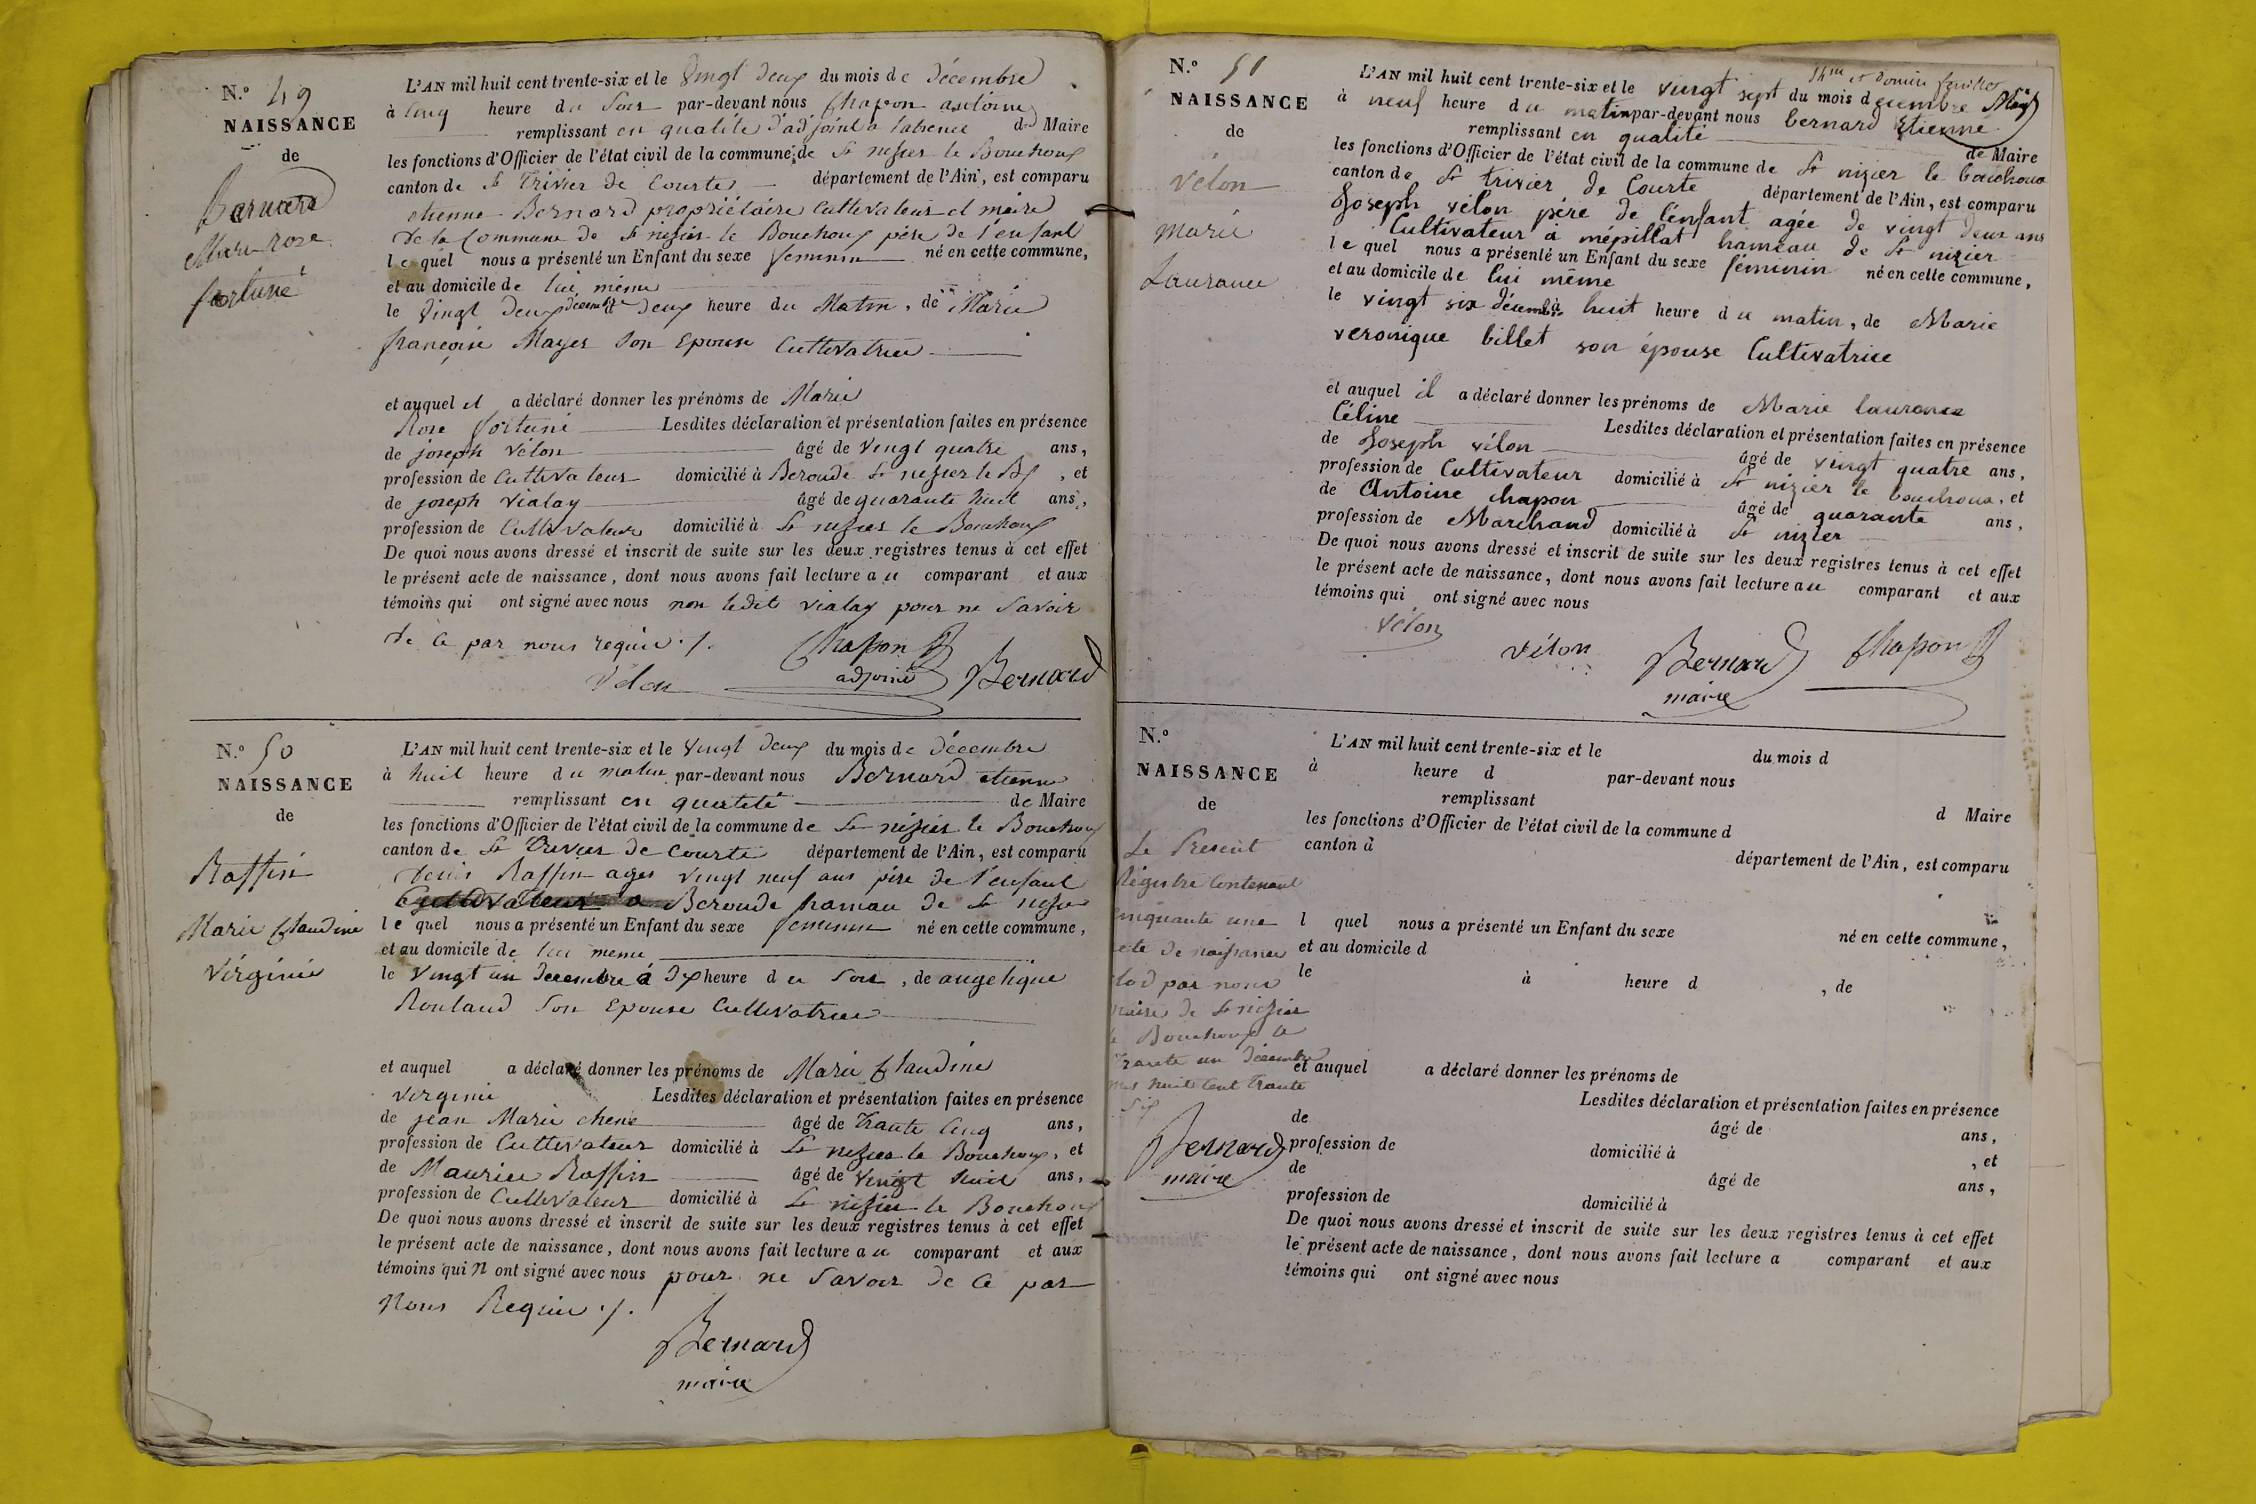 N.º 49
NAISSANCE
de
Bernard
Marie Rose
fortuné
L'AN mil huit cent trente-six et le Vingt deux du mois de décembre
à Cinq heure du Soir par-devant nous Chapon antoine
remplissant en qualité d'adjoint a l'absence du Maire
les fonctions d'Officier de l'état civil de la commune de St nizier le Bouchoux
canton de St Trivier de Courte département de l'Ain, est comparu
etienne Bernard propriétaire Cultivateur et maire
de la Commune de St nizier le Bouchoux père de l'enfant
lequel nous a présenté un Enfant du sexe feminin né en cette commune,
et au domicile de lui même
le Vingt deux décembre deux heure du Matin, de Marie
françoise Mayer Son Epouse Cultivatrice
et auquel il a déclaré donner les prénoms de Marie
Rose fortuné Lesdites déclaration et présentation faites en présence
de joseph Vélon âgé de Vingt quatre ans,
profession de Cultivateur domicilié à Beroude St nizier le Bx, et
de joseph Vialay âgé de quarante huit ans,
profession de Cultivateur domicilié à St nizier le Bouchoux
De quoi nous avons dressé et inscrit de suite sur les deux registres tenus à cet effet
le présent acte de naissance, dont nous avons fait lecture au comparant et aux
témoins qui ont signé avec nous non ledit Vialay pour ne Savoir
de Ce par nous requis ./.
Chapon
adjoint
Vélon
Bernard
N.º 50
NAISSANCE
de
Raffin
Marie Claudine
Virginie
L'AN mil huit cent trente-six et le Vingt deux du mois de décembre
à huit heure du matin par-devant nous Bernard etienne
remplissant en qualité de Maire
les fonctions d'Officier de l'état civil de la commune de St nizier le Bouchoux
canton de St Trivier de Courte département de l'Ain, est comparu
denis Raffin ager Vingt neuf ans père de l'enfant
Cultivateur a Beroude hameau de St nizier
lequel nous a présenté un Enfant du sexe feminin né en cette commune,
et au domicile de lui meme
le Vingt un Decembre à Dix heure du Soir, de angelique
Rouland Son Epouse Cultivatrice
et auquel a déclaré donner les prénoms de Marie Claudine
Virginie Lesdites déclaration et présentation faites en présence
de jean Marie chene âgé de Trante Cinq ans,
profession de Cultivateur domicilié à St nizier le Bouchoux, et
de Maurice Raffin âgé de Vingt huit ans,
profession de Cultivateur domicilié à St nizier le Bouchoux
De quoi nous avons dressé et inscrit de suite sur les deux registres tenus à cet effet
le présent acte de naissance, dont nous avons fait lecture au comparant et aux
témoins qui n ont signé avec nous pour ne Savoir de Ce par
Nous Requis ./.
Bernard
maire
N.º 51
NAISSANCE
de
Vélon
Marie
Laurance
L'AN mil huit cent trente-six et le vingt sept du mois decembre
à neuf heure du matin par-devant nous bernard Etienne
remplissant en qualité de Maire
les fonctions d'Officier de l'état civil de la commune de St nizier le bouchoux
canton de St trivier de Courte département de l'Ain, est comparu
Joseph vélon père de l'enfant agée de vingt deux ans
Cultivateur à mépillat hameau de St nizier
lequel nous a présenté un Enfant du sexe féminin né en cette commune,
et au domicile de lui même
le vingt six décembre à huit heure du matin, de Marie
veronique billet son épouse Cultivatrice
et auquel il a déclaré donner les prénoms de Marie laurence
Céline Lesdites déclaration et présentation faites en présence
de Joseph vélon âgé de vingt quatre ans,
profession de Cultivateur domicilié à St nizier le bouchoux, et
de Antoine Chapon âgé de quarante ans,
profession de Marchand domicilié à St nizier
De quoi nous avons dressé et inscrit de suite sur les deux registres tenus à cet effet
le présent acte de naissance, dont nous avons fait lecture au comparant et aux
témoins qui ont signé avec nous
Vélon
vélon
Bernard
maire
Chapon
N.º
NAISSANCE
de
Le Present
Régistre Contenant
cinquante une
acte de naissance
Clod par nous
maire de St nizier
le Bouchoux le
Trante un Décembre
mil huit Cent Trante
Six
Bernard
maire
L'AN mil huit cent trente-six et le du mois d
à heure d par-devant nous
remplissant d Maire
les fonctions d'Officier de l'état civil de la commune d
canton d département de l'Ain, est comparu
l quel nous a présenté un Enfant du sexe né en cette commune,
et au domicile d
le à heure d , de
et auquel a déclaré donner les prénoms de
Lesdites déclaration et présentation faites en présence
de âgé de ans,
profession de domicilié à , et
de âgé de ans,
profession de domicilié à
De quoi nous avons dressé et inscrit de suite sur les deux registres tenus à cet effet
le présent acte de naissance, dont nous avons fait lecture a comparant et aux
témoins qui ont signé avec nous